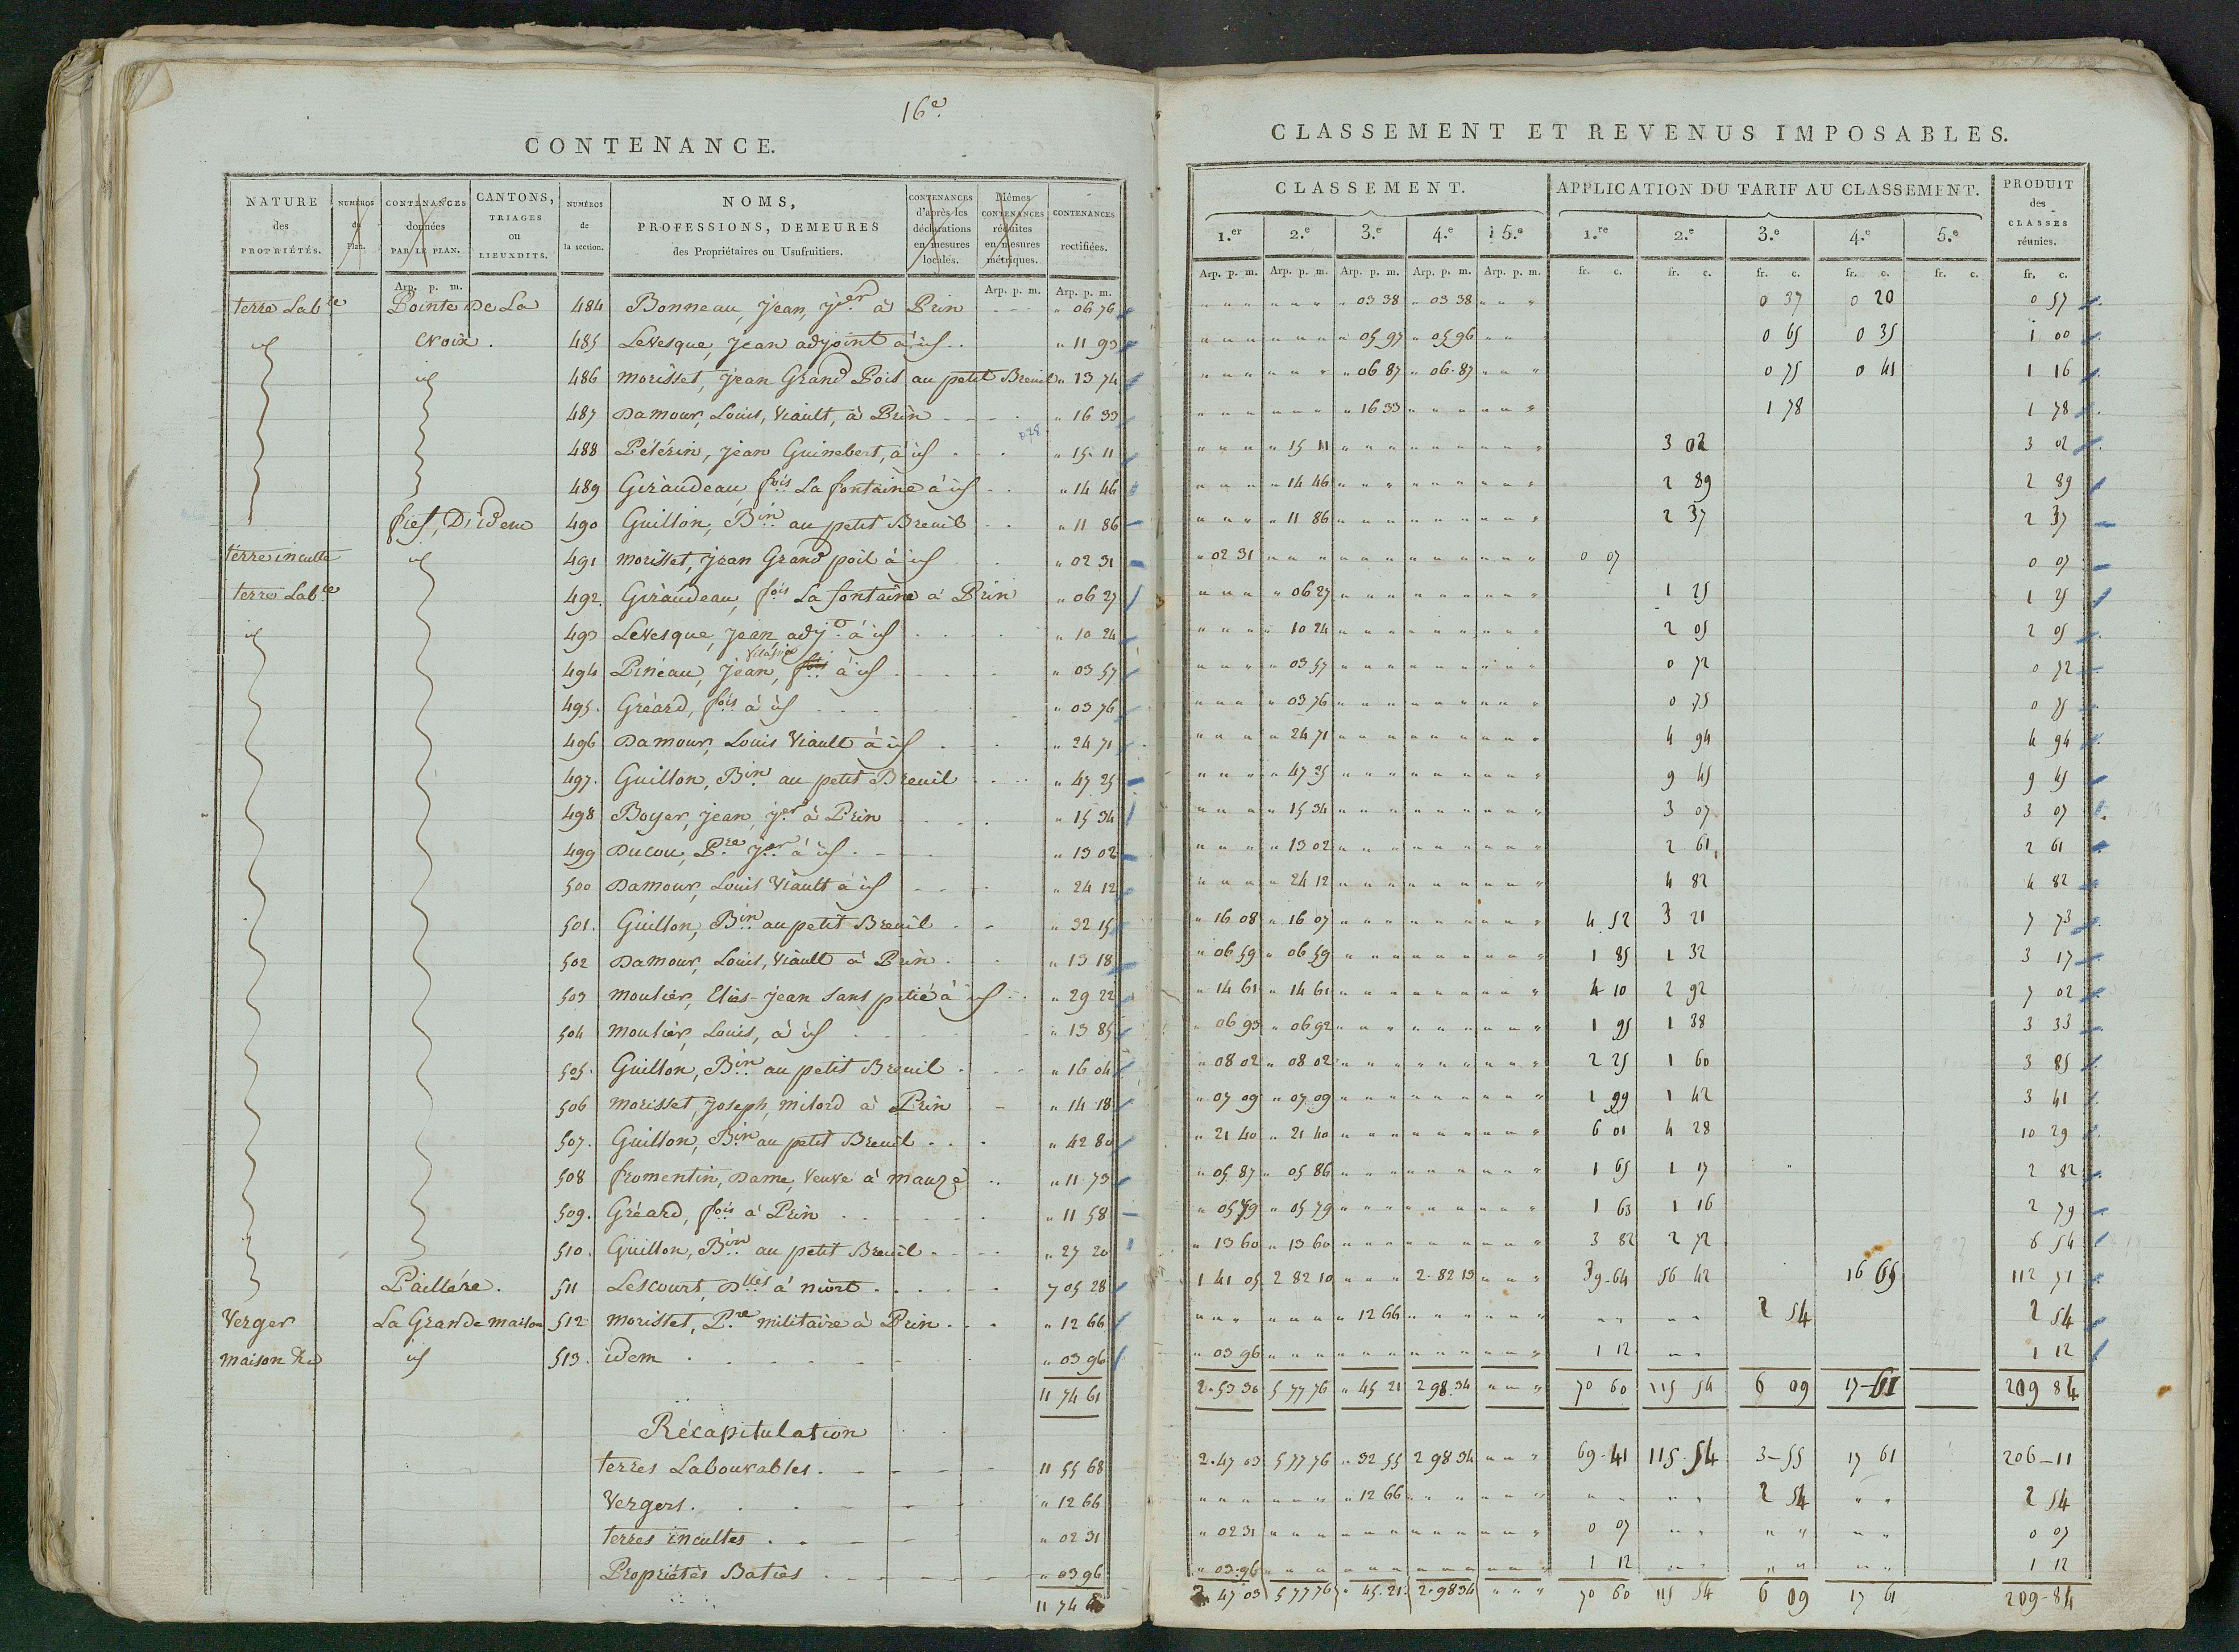 16e.
CONTENANCE.
NATURE des PROPRIÉTÉS. NUMÉROS du Plan. CONTENANCES données PAR LE PLAN. CANTONS, TRIAGES ou LIEUXDITS. NUMÉROS de la section. NOMS, PROFESSIONS, DEMEURES des Propriétaires ou Usufruitiers. CONTENANCES d'après les déclarations en mesures locales. Mêmes CONTENANCES réduites en mesures métriques. CONTENANCES rectifiées.
Arp. p. m. Arp. p. m. Arp. p. m.
terre Lable Pointe De La 484 Bonneau, Jean, Jer à Prin " 06 76
id croix. 485 Levesque, Jean adjoint à id. " 11 93
id 486 Morisset, Jean Grand Pois au petit Breuil " 13 74
487 Damour, Louis, Viault, à Prin " 16 33
488 Pélérin, Jean Guinebert, à id " 15 11
489 Giraudeau, fois La fontaine à id " 14 46
fief, D'idem 490 Guillon, Bin au petit Breuil " 11 86
terre inculte id 491 Morisset, Jean Grand poil à id " 02 31
terre Lable 492. Giraudeau, fois La fontaine à Prin " 06 27
id 493 Levesque, Jean, adjt à id " 10 24
494 Pineau, Jean, à id " 03 57
495. Gréard, fois à id " 03 76
496 Damour, Louis Viault à id " 24 71
497. Guillon, Bin au petit Breuil " 47 25
498 Boyer, Jean, Jer à Prin " 15 34
499 Ducou, Pre Jer à id " 13 02
500 Damour, Louis Viault à id " 24 12
501. Guillon, Bin au petit Breuil " 32 15
502 Damour, Louis, Viault à Prin " 13 18
503 Moulier, Elies-Jean Sans pitié à id " 29 22
504 Moulier, Louis, à id " 13 85
505. Guillon, Bin au petit Breuil " 16 04
506 Morisset, Joseph, Milord à Prin " 14 18
507. Guillon, Bin au petit Breuil " 42 80
508 fromentin, Dame, Veuve à Mauzé " 11 73
509. Gréard, fois à Prin " 11 58
510. Guillon, Bin au petit Breuil " 27 20
Paillére. 511 Lescourt, Dlles à niort 7 05 28
Verger La Grande maison 512 Morisset, Pre militaire à Prin " 12 66
Maison id 513. idem " 03 96
11 74 61
Récapitulation
terres Labourables. 11 55 68
Vergers. " 12 66
terres incultes " 02 31
Propriétés Baties " 03 96
11 74
CLASSEMENT ET REVENUS IMPOSABLES.
CLASSEMENT. APPLICATION DU TARIF AU CLASSEMENT. PRODUIT des CLASSES réunies.
1.er 2.e 3.e 4.e 5.e 1.re 2.e 3.e 4.e 5.e
Arp. p. m. Arp. p. m. Arp. p. m. Arp. p. m. Arp. p. m. fr. c. fr. c. fr. c. fr. c. fr. c. fr. c.
" 03 38 " 03 38 0 37 0 20 0 57
" 05 97 " 05 96 0 65 0 35 1 00
" 06 87 " 06 87 0 75 0 41 1 16
" 16 33 1 78 1 78
" 15 11 3 02 3 02
" 14 46 2 89 2 89
" 11 86 2 37 2 37
" 02 31 0 07 0 07
" 06 27 1 25 1 25
" 10 24 2 05 2 05
" 03 57 0 72 0 72
" 03 76 0 75 0 75
" 24 71 4 94 4 94
" 47 25 9 45 9 45
" 15 34 3 07 3 07
" 13 02 2 61 2 61
" 24 12 4 82 4 82
" 16 08 " 16 07 4 52 3 21 7 73
" 06 59 " 06 59 1 85 1 32 3 17
" 14 61 " 14 61 4 10 2 92 7 02
" 06 93 " 06 92 1 95 1 38 3 33
" 08 02 " 08 02 2 25 1 60 3 85
" 07 09 " 07 09 1 99 1 42 3 41
" 21 40 " 21 40 6 01 4 28 10 29
" 05 87 " 05 86 1 65 1 17 2 82
" 05 79 " 05 79 1 63 1 16 2 79
" 13 60 " 13 60 3 82 2 72 6 54
1 41 05 2 82 10 " " " 2 82 13 39-64 56 42 16 65 112 71
" 12 66 2 54 2 54
" 03 96 1 12 1 12
2 53 30 5 77 76 " 45 21 2 98 34 70 60 115 54 6 09 17-61 209 84
2 47 03 5 77 76 " 32 55 2 98 34 69-41 115 54 3-55 17 61 206-11
" 12 66 2 54 2 54
" 02 31 0 07 0 07
" 03 96 1 12 1 12
2 47 03 5 77 76 " 45 21 2 98 34 70 60 115 54 6 09 17 61 209-84